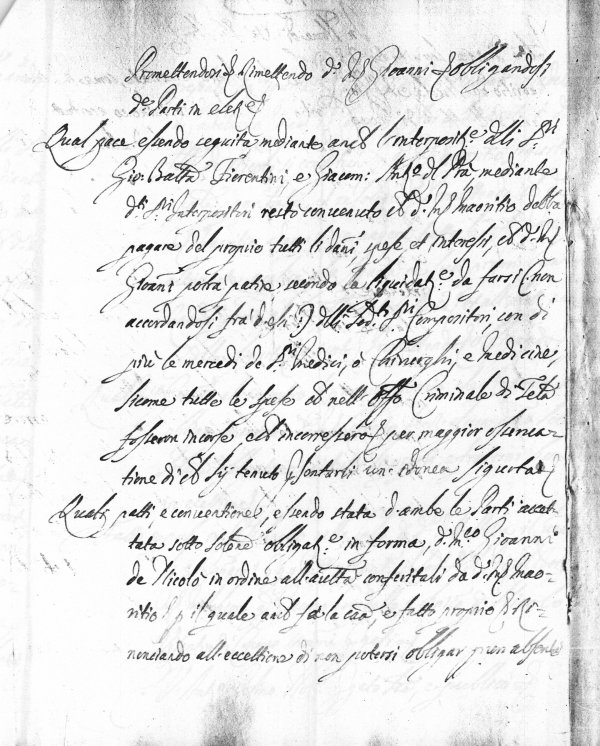 Promettendosi, et Rimettendo d.º Gioanni et obligandosi
d.e Parti in
Qual pace essendo seguita mediante anco l'interposit.e delli SS.ri
Gio: Batta Fiorentini, e Giacom: Ant.o dl Prà mediante
d.ti SS.ri Interpositori restò convenuto che d.º Maoritio debba
pagare del proprio tutti li danni, spese et interessi, che d.º
Gioanni potrà patire secondo la liquidat.e da farsi (non
accordandosi frà d'essi) dalli SS.ri Compositori, con di
più le mercedi de SS.ri Medici, ò Chirurghi, e medicine,
sicome tutte le spese che nell' Off.o Criminale di
fossero incorse, e che incorressero, et per maggior osserva-
tione di che sij tenuto un' idonea sigurtà
Quali patti e conventione, essendo stata d'ambe le Parti accet-
tata sotto solene obligat.e in forma, d.º Gioanni
de Nicolò in ordine all'auttà conferitali da d.º Mao-
ritio per il quale anco fà la caa, e fatto proprio et Re-
nonciando all'eccettione di non potersi obligar p un absente